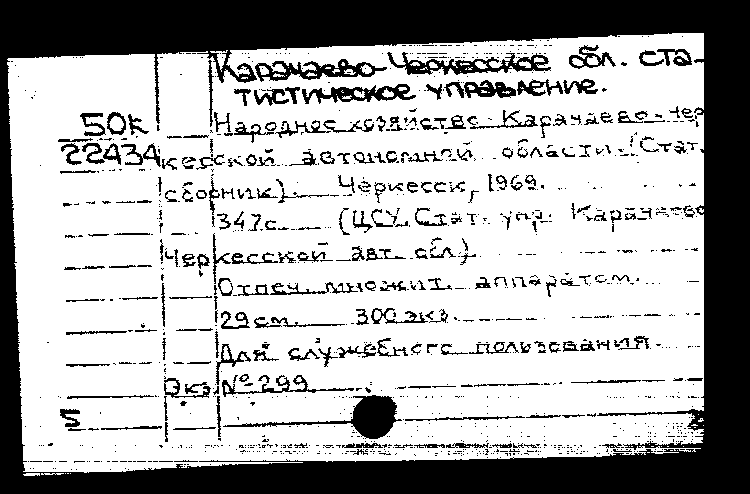 Карачаево-Черкесское обл. ста-
тистическое управление.
50к
22434
Народное хозяйство Карачаево-Чер
кесской автономной области. (Стат.
сборник). Черкесск, 1969.
347с. (ЦСУ. Стат. упр. Карачаево
Черкесской авт. обл.)
Отпеч. множит. аппаратом.
29 см. 300 экз.
Для служебного пользования.
Экз. № 299